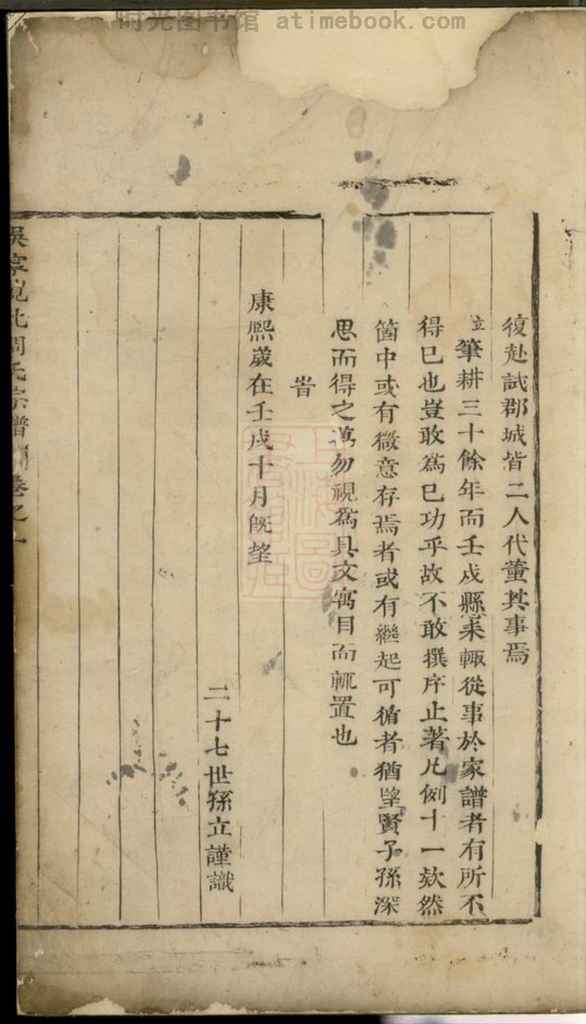 时光图书馆 atimebook.com
復赴試郡城皆二人代董其事焉
立筆耕三十餘年而壬戌縣業輒從事於家譜者有所不
得已也豈敢為已功乎故不敢撰序止著凡例十一欸然
箇中或有微意存焉者或有繼起可循者猶望賢子孫深
思而得之萬勿視為具文寓目而輒置也
旹
康熙歲在壬戌十月旣望
二十七世孫立謹識
周氏宗譜 卷之